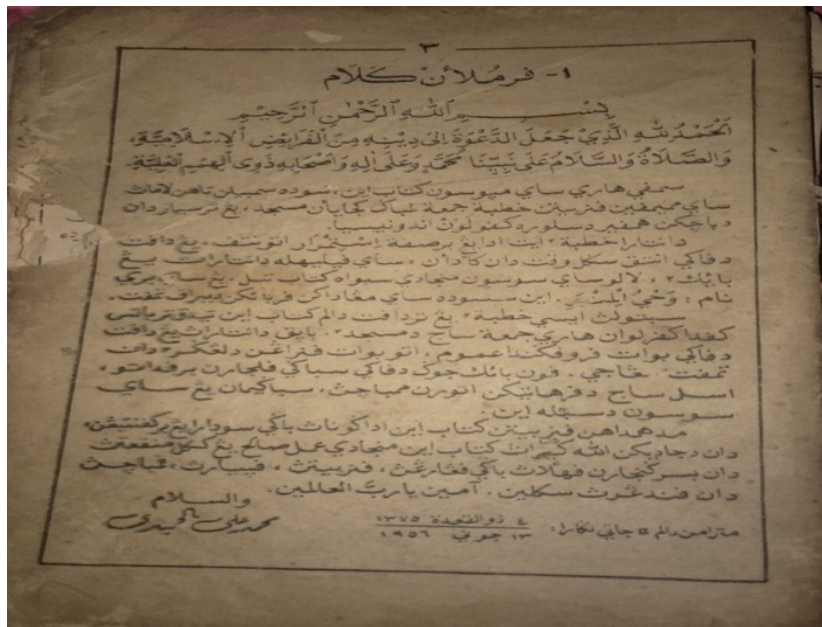 ٣
١- فرمُلاٴن كَلَام
بِسْــــمِ اللهِ الرَّحْمٰنِ الرَّحِيْمِ
اَلْحَمْدُ لِلّٰهِ الَّذِيْ جَعَلَ الدَّعْوَةَ اِلَى دِيْنِهِ مِنَ الْفَرَائِضِ الْاِسْلَامِيَّةِ،
وَالصَّلَاةُ وَالسَّلَامُ عَلَى نَبِيِّنَا مُحَمَّدٍ وَعَلَى اٰلِهِ وَاَصْحَابِهِ ذَوِى الْهِمَمِ الْعَلِيَّةِ.
سمڤي هاري ساي مپوسون كتاب اين، سوده سمبيلن تاهن لامات
ساي ممميمڤين ڤنربيتن خطبة جمعة اونتوق كجاياٴن مسجد، يڠ ترسيار دان
دباچكن همڤير دسلوره كڤولوٴن اندونيسيا.
دانتارا خطبة ٢ ايت اداپڠ برصفة اِسْتِمْرَار اتوتتڤ، يڠ داڤت
دڤاكي انتق سكل وقت دان كأداٴن، ساي ڤيليهله دانتاراث يڠ
بائيك ٢، لالو ساي سوسون منجادي سبواه كتاب تبل، يڠ ساي بري
نام : وَحْيُ الْمِنْبَرِ. اين سسوده ساي مڠاداكن ڤرباٴيكن ببراڤ تمڤت.
سبتولث ايسي خطبة ٢ يڠ تردڤت دالم كتاب اين تيدق ترباتس
كڤدا كڤرلوان هاري جمعة ساج دمسجد ٢، باپق دانتاراث يڠ داڤت
دڤاكي بوات ڤروڤڬندا عموم، اتو بوات ڤنراڠن دلڠڬر ٢ دان
تمڤت ٢ مڠاجي، ڤون بائيك جوڬ دڤاكي سباڬي ڤلجارن برڤيداتو،
اسل ساج دڤرهاتيكن اتورن ممباچث، سباڬيمان يڠ ساي
سوسون دسبله اين.
مدهمداهن ڤنربيتن كتاب اين اد ڬوناث باڬي سودارا يڠ بركڤنتيڠن،
دان دجاديكن الله كيراث كتاب اين منجادي عمل صالح يڠ ككل منفعتث
دان بسر ڬنجارن ڤهلاث باڬي ڤڠارڠث، ڤنربيتث، ڤمبياث، ڤمباچث
دان ڤندڠرث سكلين. آمين يا ربّ العالمين.
والسلام
متر امن دالم جاتي نڬارا: ٤ ذوالقعدة ١٣٧٥
١٣ جوني ١٩٥٦
محمد علي الحميدي